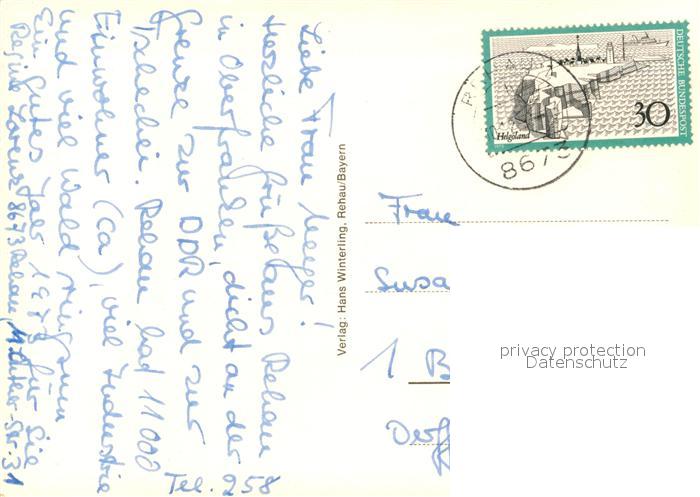 Liebe Frau Meyer!
Herzliche Grüße aus Rehau
in Oberfranken, dicht an der
Grenze zur DDR und zur
Tschechei. Rehau hat 11000
Einwohner (ca), viel Industrie
und viel Wald ringsum
Ein gutes Jahr 1973 für Sie
Regine Lorenz 8673 Rehau, M. Luther-Str. 31
Tel. 258
Verlag: Hans Winterling, Rehau/Bayern
DEUTSCHE BUNDESPOST
30
Helgoland
8673
Frau
Susa
1 B
privacy protection
Datenschutz